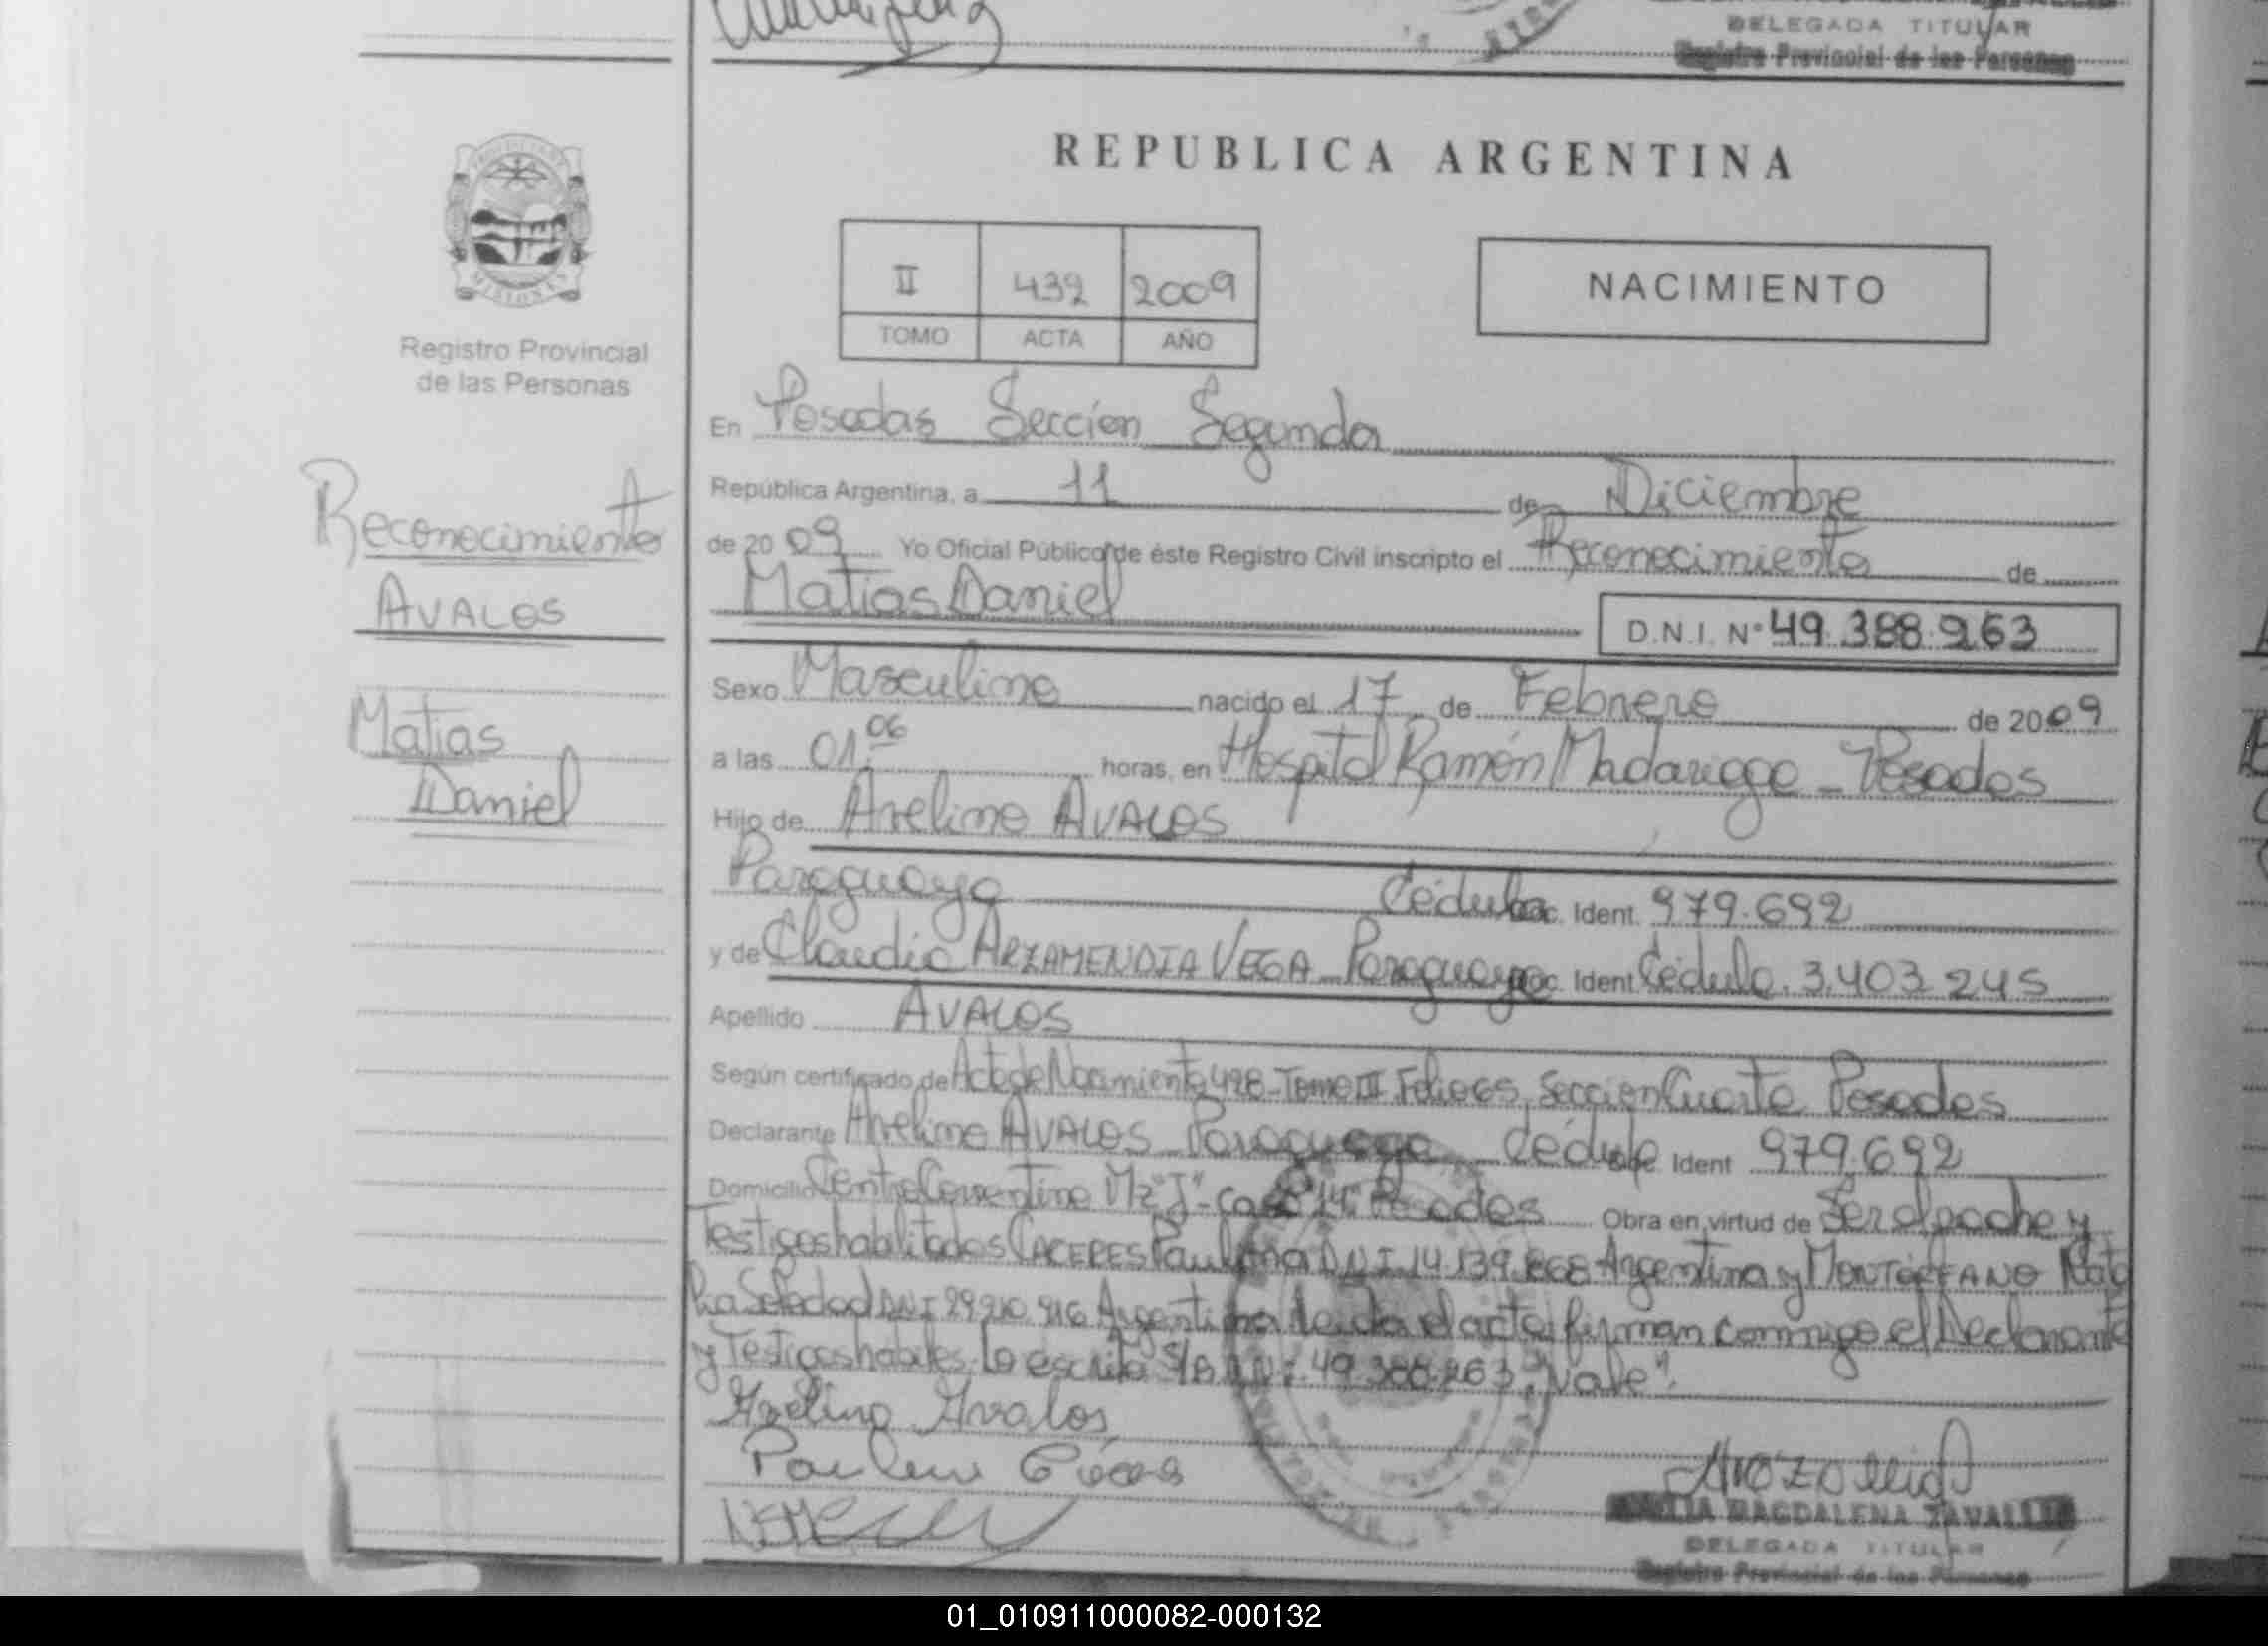 DELEGADA TITULAR
Registro Provincial de las Personas
REPUBLICA ARGENTINA
II 432 2009
TOMO ACTA AÑO
NACIMIENTO
Registro Provincial
de las Personas
Reconocimiento
AVALOS
Matias
Daniel
En Posadas Sección Segunda
República Argentina, a 11 de Diciembre
de 2009 Yo Oficial Público de éste Registro Civil inscripto el Reconocimiento de
Matias Daniel D.N.I. Nº 49.388.263
Sexo Masculino nacido el 17 de Febrero de 2009
a las 01:06 horas, en Hospital Ramón Madariaga - Posadas
Hijo de Avelino AVALOS
Paraguayo Cédula Doc. Ident. 979.692
y de Claudia ARZAMENDIA VEGA - Paraguaya Doc. Ident Cédula. 3.403.245
Apellido AVALOS
Según certificado de Acta de Nacimiento 498 - Tomo III Folio 65, Sección Cuarta Posadas
Declarante Avelino AVALOS - Paraguayo - Cédula Ident 979.692
Domicilio Mz "J" - Casa "14" Posadas Obra en virtud de Ser el padre y
Testigos habilitados CACERES Paulina DNI 14.139.868 Argentina y
Soledad DNI Argentina leída el acta firman conmigo el Declarante
y Testigos habiles. Lo escrito S/B DNI: 49.388.263 "Vale".
Avelino Avalos
MAGDALENA
DELEGADA TITULAR
Registro Provincial de las Personas
01_010911000082-000132